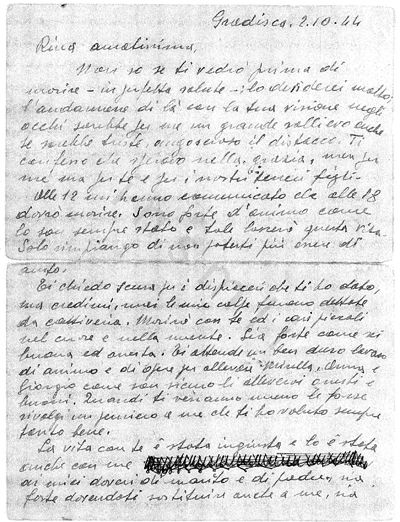 Gradisca, 2.10.44
Rina amatissima,
Non so se ti vedrò prima di
morire – in perfetta salute – lo desidererei molto;
l'andarmene di là con la tua visione negli
occhi sarebbe per me un grande sollievo anche
se sarebbe triste, angoscioso il distacco. Ti
confesso che speravo nella grazia, non per
me ma per te e per i nostri teneri figli.
Alle 12 mi hanno comunicato che alle 18
dovrò morire. Sono forte d'animo come
lo son sempre stato e tale lascerò questa vita.
Solo rimpiango di non poterti più essere di
aiuto.
Ti chiedo scusa per i dispiaceri che ti ho dato,
ma credimi, mai le mie colpe furono dettate
da cattiveria. Morirò con te ed i cari piccoli
nel cuore e nella mente. Sia forte come sei
buona ed onesta. Ti attendi un ben duro lavoro
di animo e di opera per allevare Mirella, Anna e
Giorgio come son sicuro li alleverai onesti e
buoni. Quando ti verranno meno le forze
rivolgi un pensiero a me che ti ho voluto sempre
tanto bene.
La vita con te è stata ingiusta e lo è stata
anche con me,
ai miei doveri di marito e di padre, ma
forte dovendoti sostituire anche a me, ma